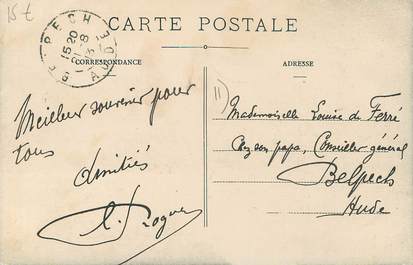 15 €
CARTE POSTALE
CORRESPONDANCE
ADRESSE
15 20
AUDE
11)
Meilleur souvenir pour
tous
Amitiés
Mademoiselle Louise de Ferré
Chez son papa, Conseiller général
Belpech
Aude